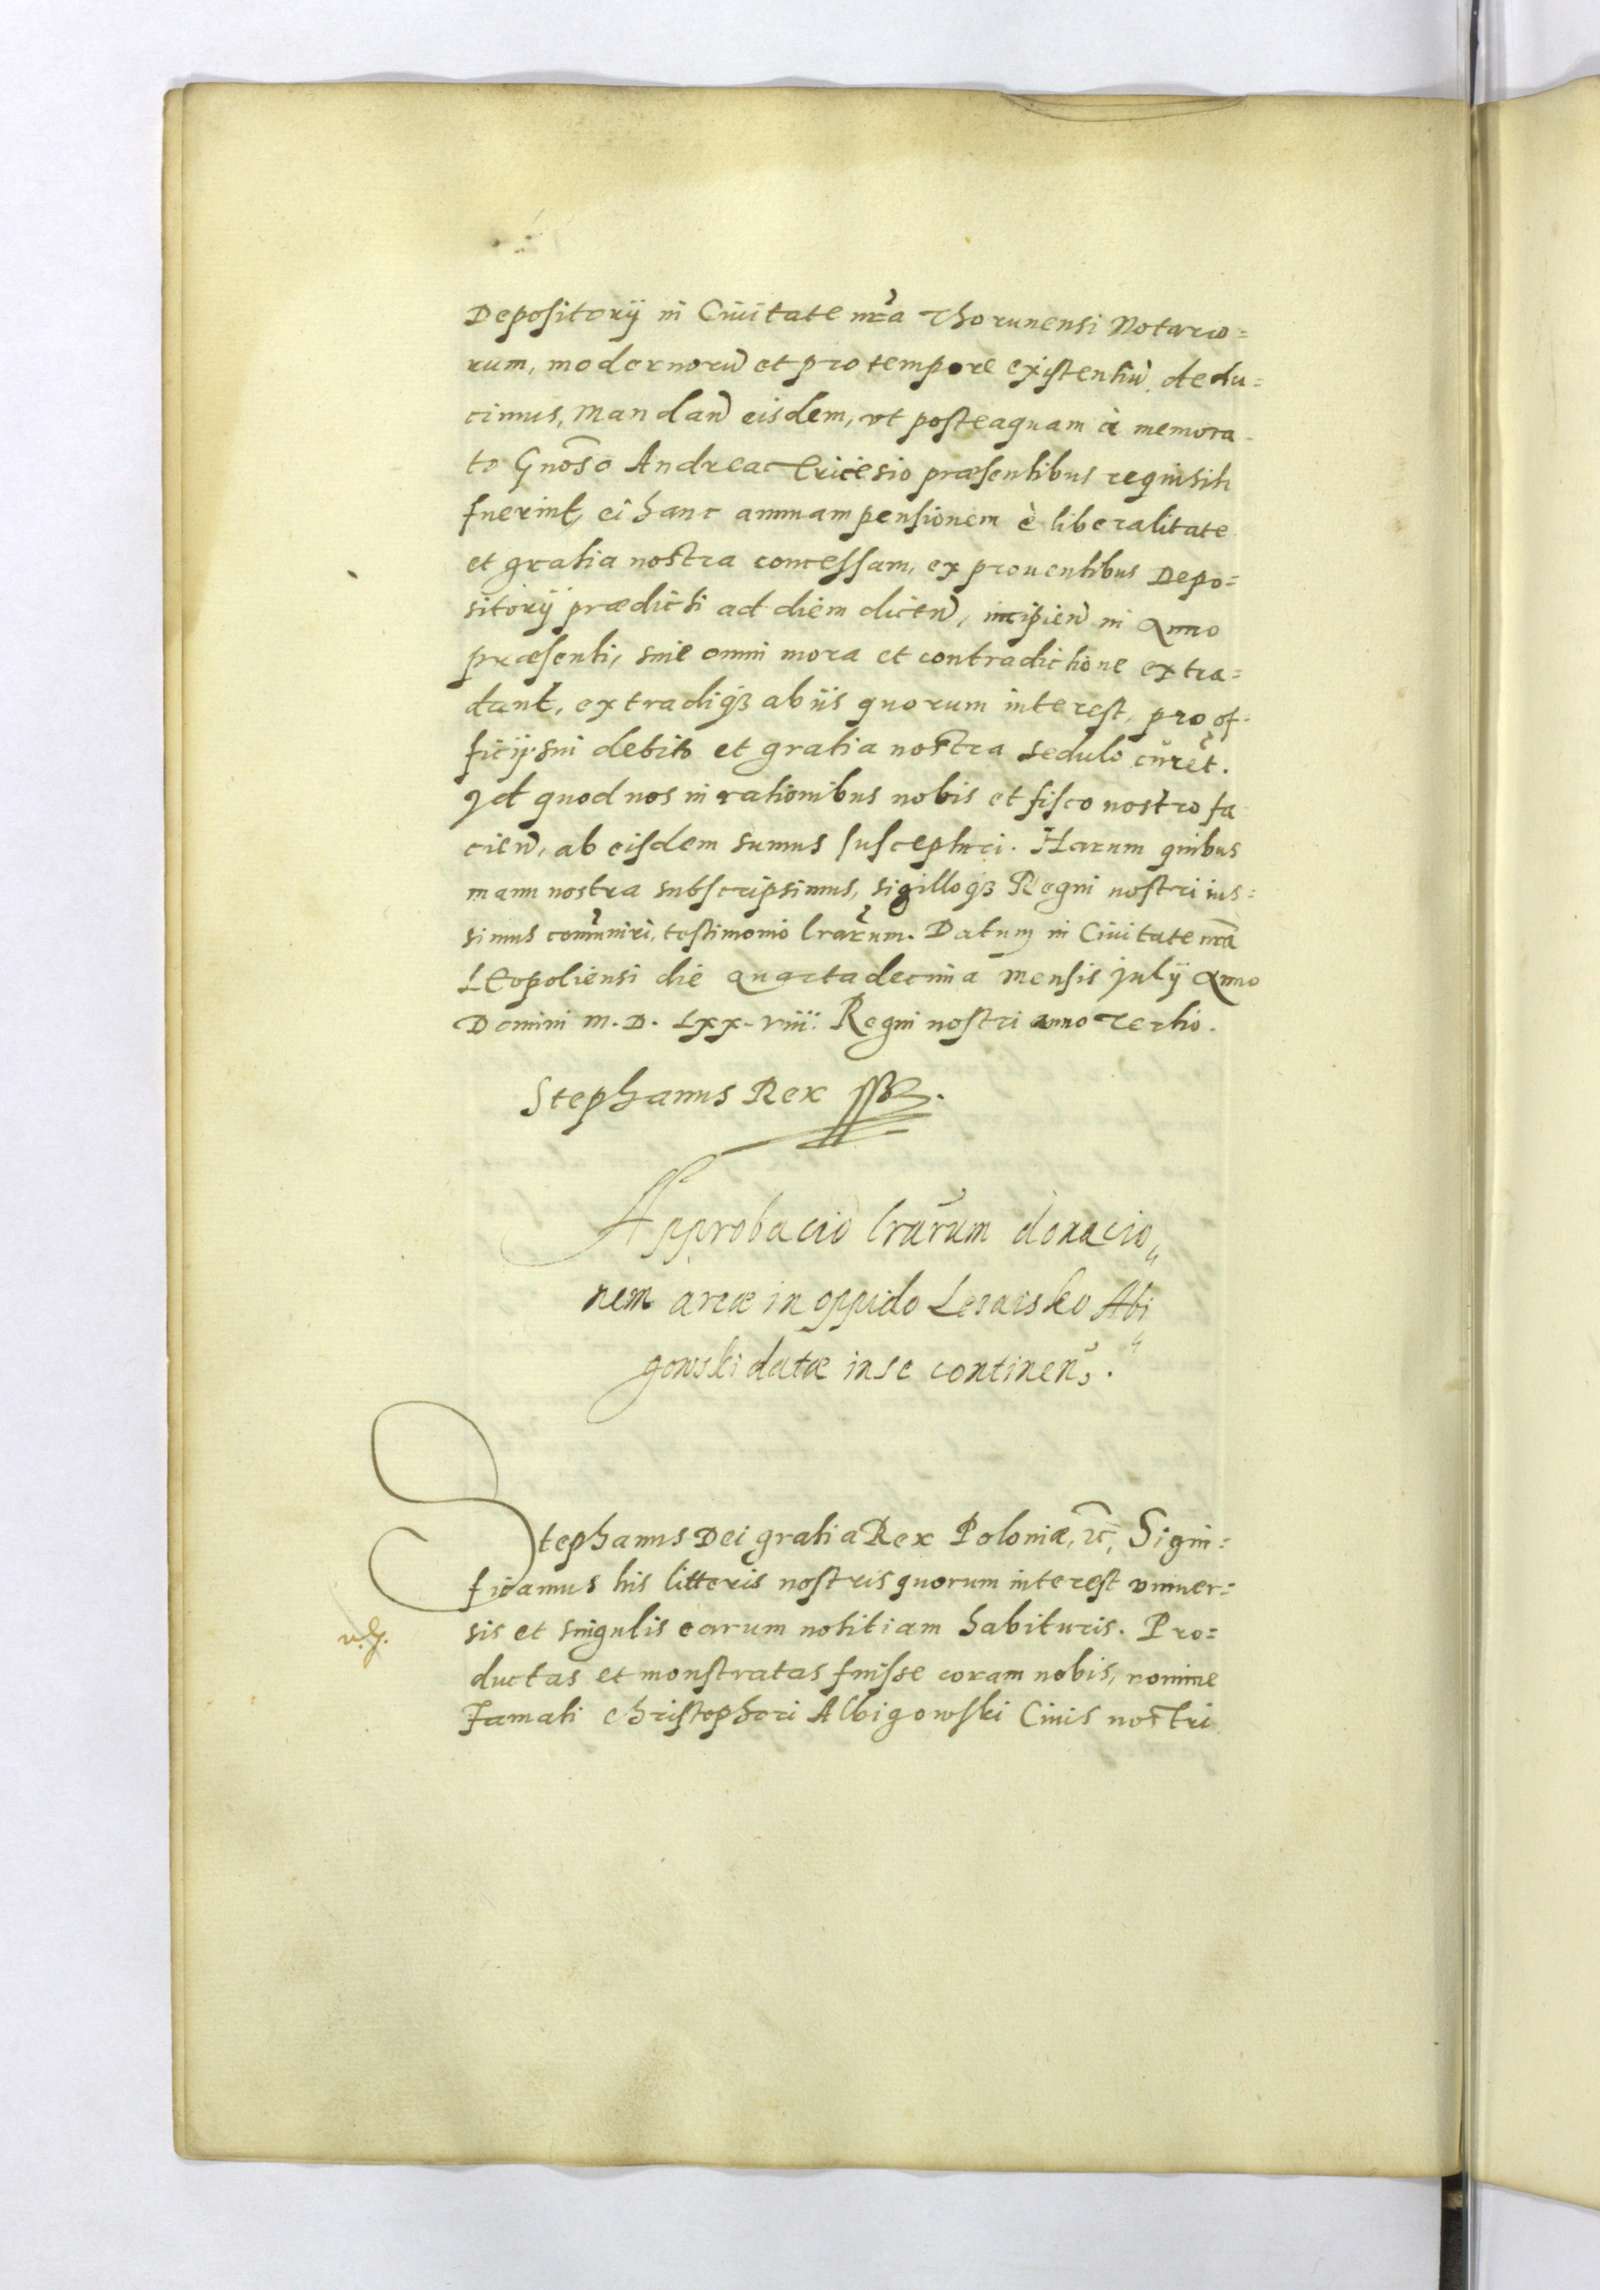 Depositorij in Ciuitate nr̃a Thorunensi Notario=
rum, modernorũ et pro tempore existentiũ dedu=
cimus, Mandan̄ eisdem, vt posteaquam à memora-
to Gnõso Andrea Tricesio præsentibus requisiti
fuerint, ei hanc annuam pensionem è liberalitate
et gratia nostra concessam, ex prouentibus Depo=
sitorij prædicti ad diem dicen̄, incipien̄ in Anno
præsenti, sine omni mora et contradictione extra=
dant, extradiq3 ab iis quorum interest, pro of-
ficij sui debito et gratia nostra sedulo curẽt.
Id quod nos in rationibus nobis et fisco nostro fa
cien̄, ab eisdem sumus suscepturi. Harum quibus
manu nostra subscripsimus, sigilloq3 Regni nostri ius=
simus com̃uniri, testimonio lrarũm. Datum in Ciuitate nrã
LEopoliensi die Quarta decima Mensis Julij Anno
Domini M. D. Lxx-viii: Regni nostri anno Tertio.
Stephanus Rex ssz.
Approbacio lrarũm donacio„
nem areæ in oppido Lezaisko Abi„
gowski datæ in se continen̄,.
Stephanus Dei gratia Rex Poloniæ, ꝛc̃, Signi=
ficamus his litteris nostris quorum interest vniuer=
sis et singulis earum notitiam habituris. Pro=
v. g.
ductas et monstratas fuisse coram nobis, nomine
Famati Christophori Albigowski Ciuis nostri